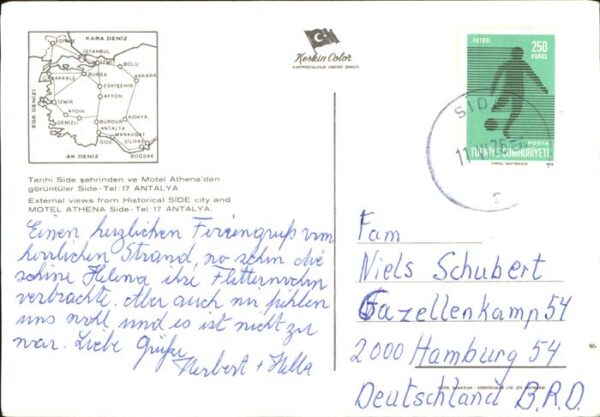 KARA DENİZ
EDİRNE
İSTANBUL
İZMİT
BOLU
BURSA
ÇANAKKALE
ANKARA
ESKİŞEHİR
AFYON
İZMİR
AYDIN
DENİZLİ
BURDUR
KONYA
ANTALYA
MANAVGAT
SİDE
SİLİFKE
BOĞSAK
EGE DENİZİ
AK DENİZ
Keskin Color
KARTPOSTALCILIK LİMİTED ŞİRKETİ
FUTBOL
250
KURUŞ
POSTA
TÜRKİYE CUMHURİYETİ
SİDE
Tarihi Side şehrinden ve Motel Athena'dan
görüntüler Side-Tel:17 ANTALYA
External views from Historical SİDE city and
MOTEL ATHENA Side-Tel:17 ANTALYA
Einen herzlichen Feriengruß vom
herrlichen Strand, wo schon die
schöne Helena ihre Flitterwochen
verbrachte. Aber auch wir fühlen
uns wohl und es ist nicht zu
war. Liebe Grüße
Herbert + Hella
Fam
Niels Schubert
Gazellenkamp 54
2000 Hamburg 54
Deutschland B.R.D.